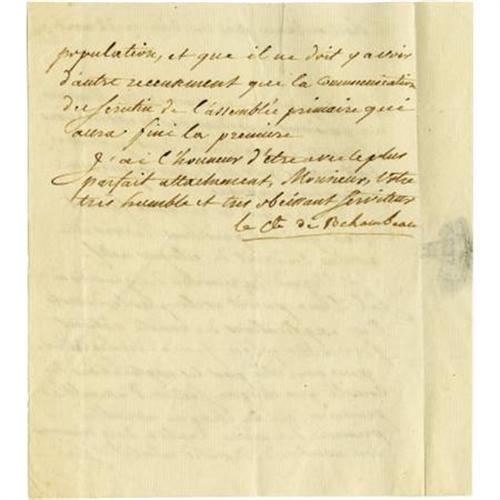 population, et que il ne doit y avoir
d'autre recensment que la Commenération
du scrutin de l'assemblée primaire qui
aura fini la premiere
J'ai l'honneur d'etre avec le plus
parfait attachement, Monsieur, Votre
tres humble et tres obéissant Serviteur
le Cte de Rchambeau